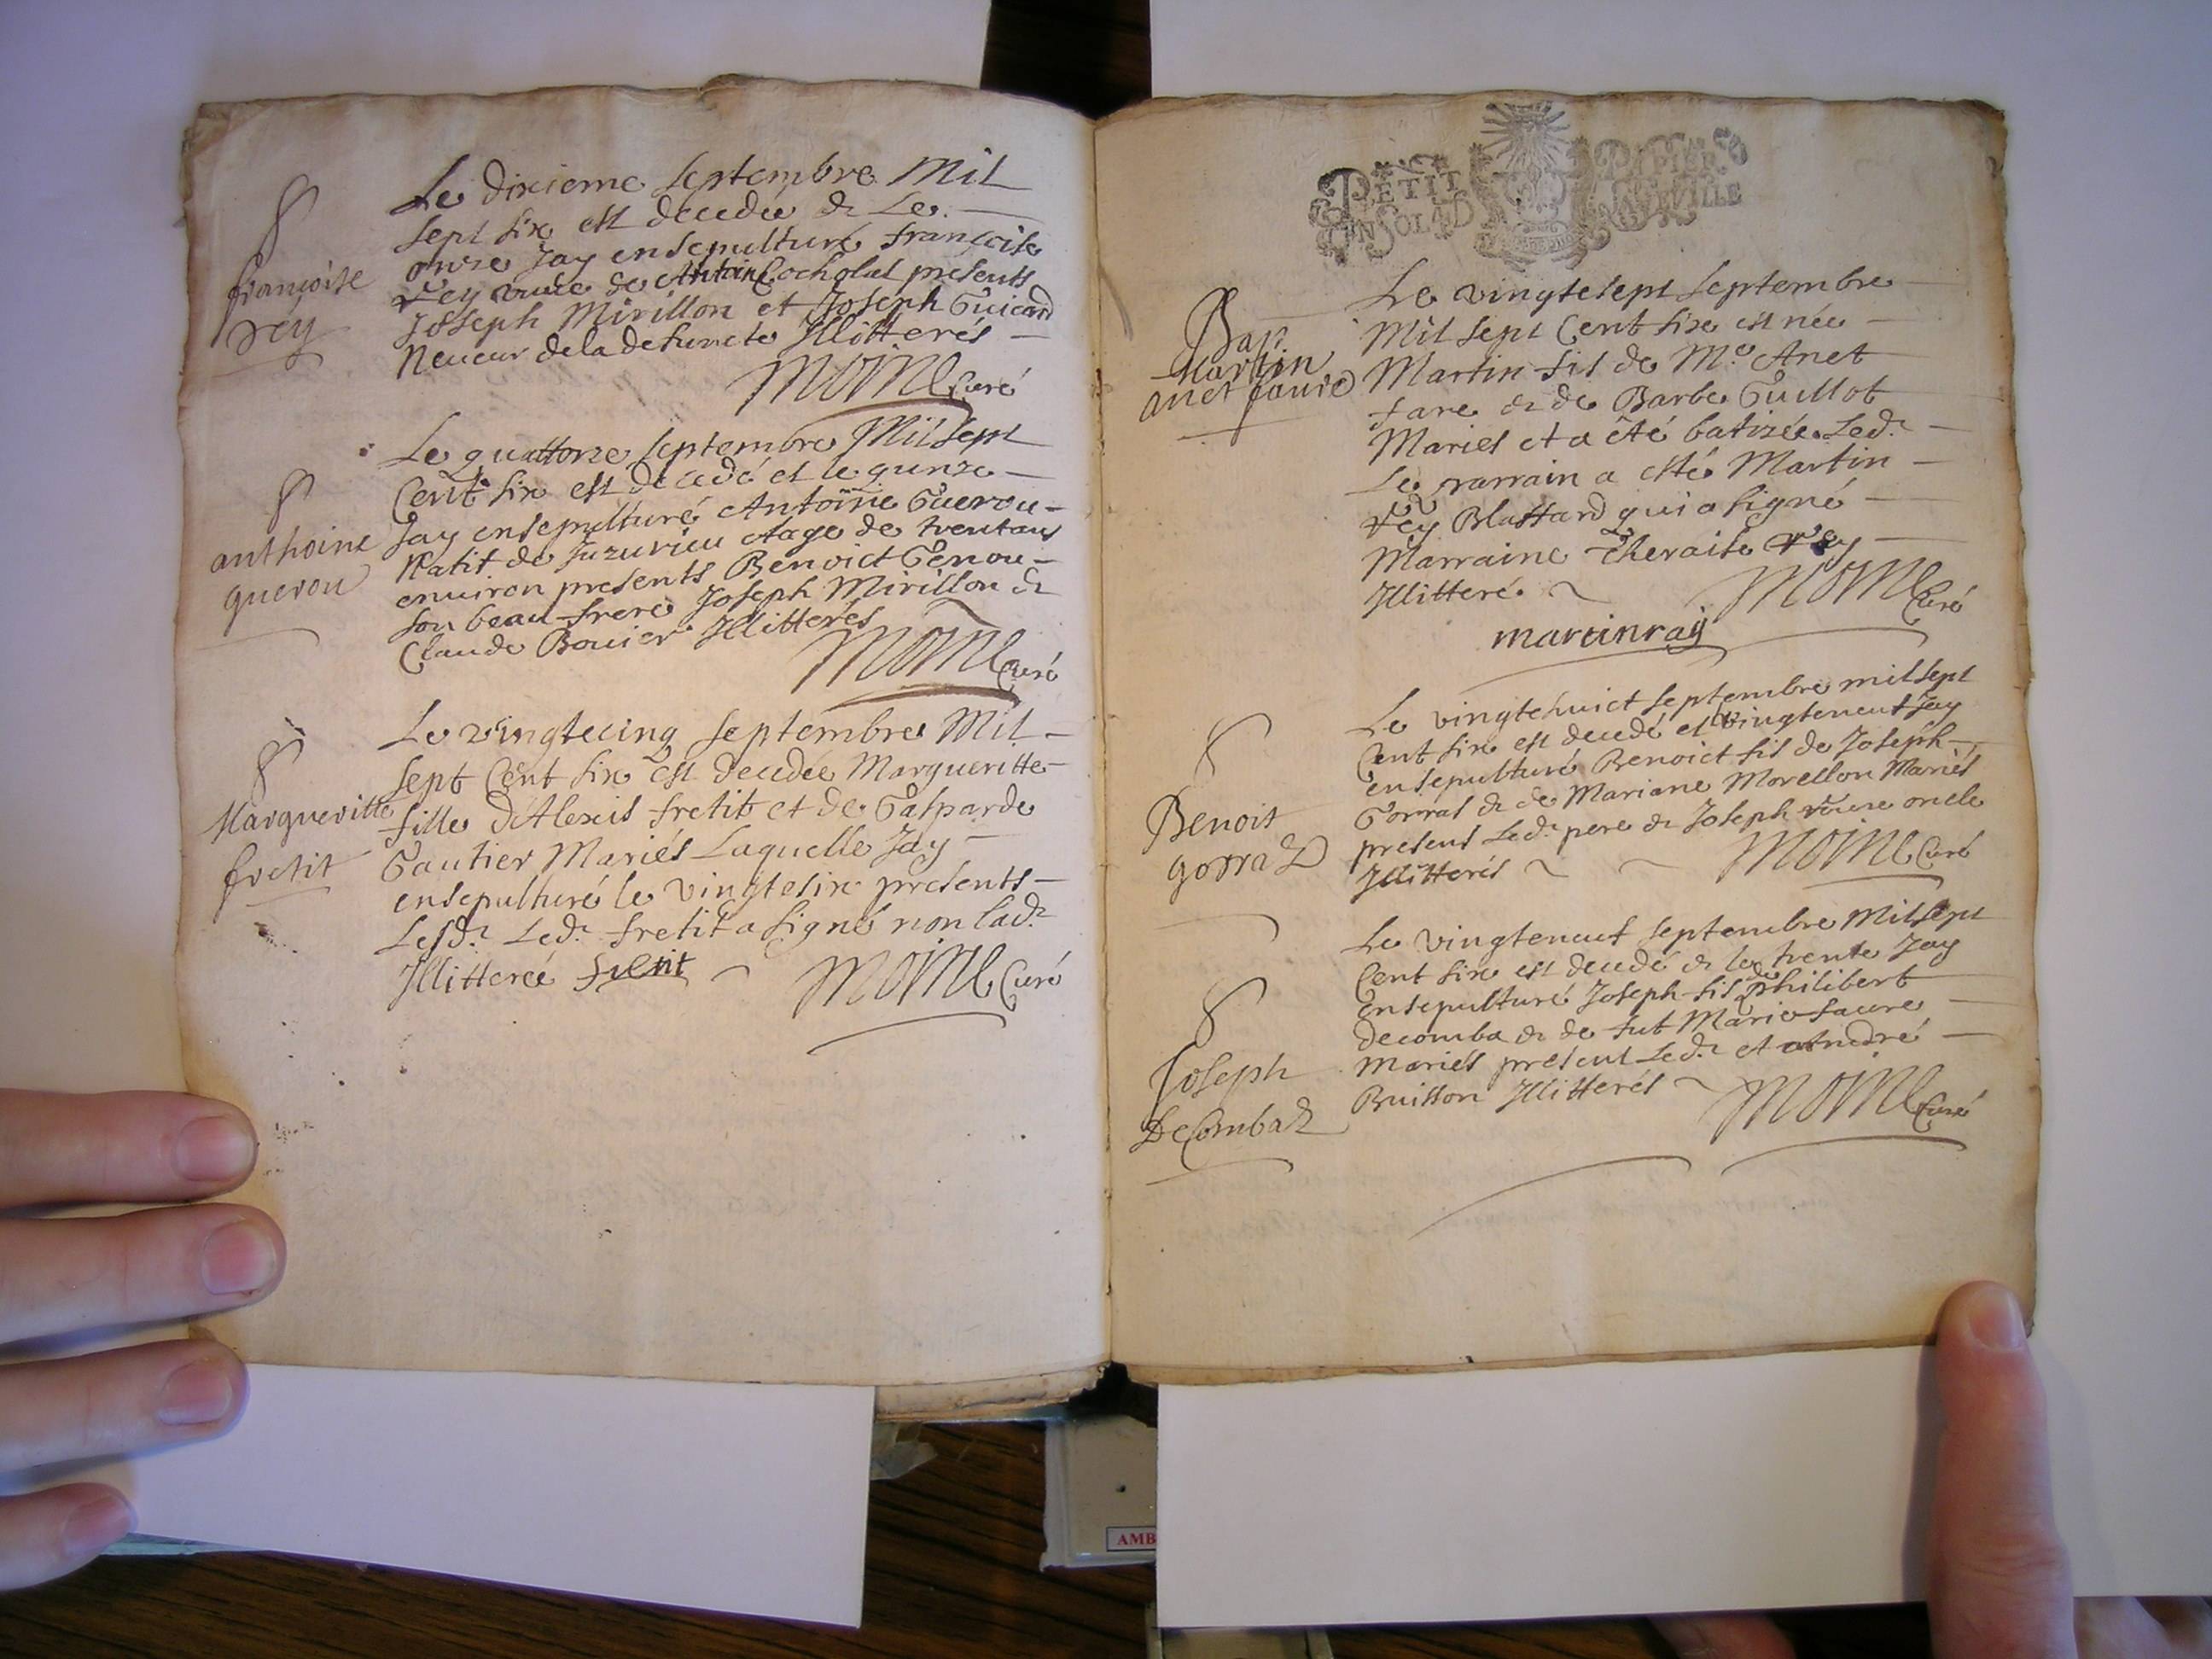 françoise
rey
Le dixieme septembre Mil
sept six est decedée & Le
onze Jay ensepulturé françoise
Rey veuve de Antoine Cocholat presents
Joseph Mirillon et Joseph Guicard
Neueur dela defuncte Illitterés
Moine Curé
anthoine
guerou
Le quattorze septembre Mil sept
Cent six est decedé et le quinze
Jay ensepulturé Antoine Guerou
Natif de Juzurieu Aage de trent ans
enuiron presents Benoict Genou
son beau-frere Joseph Mirillon &
Claude Bouier Illitterés
Moine Curé
Margueritte
fretit
Le vingtecinq septembre Mil
sept Cent six est decedée Margueritte
fille d'Alexis fretit et de Gasparde
Gautier Mariés Laquelle Jay
ensepulturé le vingtesix presents
Lesd. Led. fretit a signé non lad.
Illitterée fretit Moine Curé
PETIT PAPIER
Bap.
Martin
anet faure
Le vingtesept septembre
Mil sept Cent six est née
Martin fils de Me Anet
fare & de Barbe Guillot
Mariés et a été batizée Led.
Le parrain a esté Martin
Rey Blattard qui a signé
Marraine Theraise Rey
Illitteré Moine Curé
martin ray
Benoit
gorraz
Le vingtehuict septembre mil sept
Cent six est decedé et vingteneuf Jay
ensepulturé Benoict fils de Joseph
Gorras & de Mariane Morellon Mariés
present Led. pere & Joseph oncle
Illitterés Moine Curé
Joseph
DeCombaz
Le vingteneuf septembre Mil sept
Cent six est decedé & le trente Jay
ensepulturé Joseph fils de philibert
decomba & de fut Marie faure
Mariés present Led. et Andre
Buisson Illitterés Moine Curé
AMB